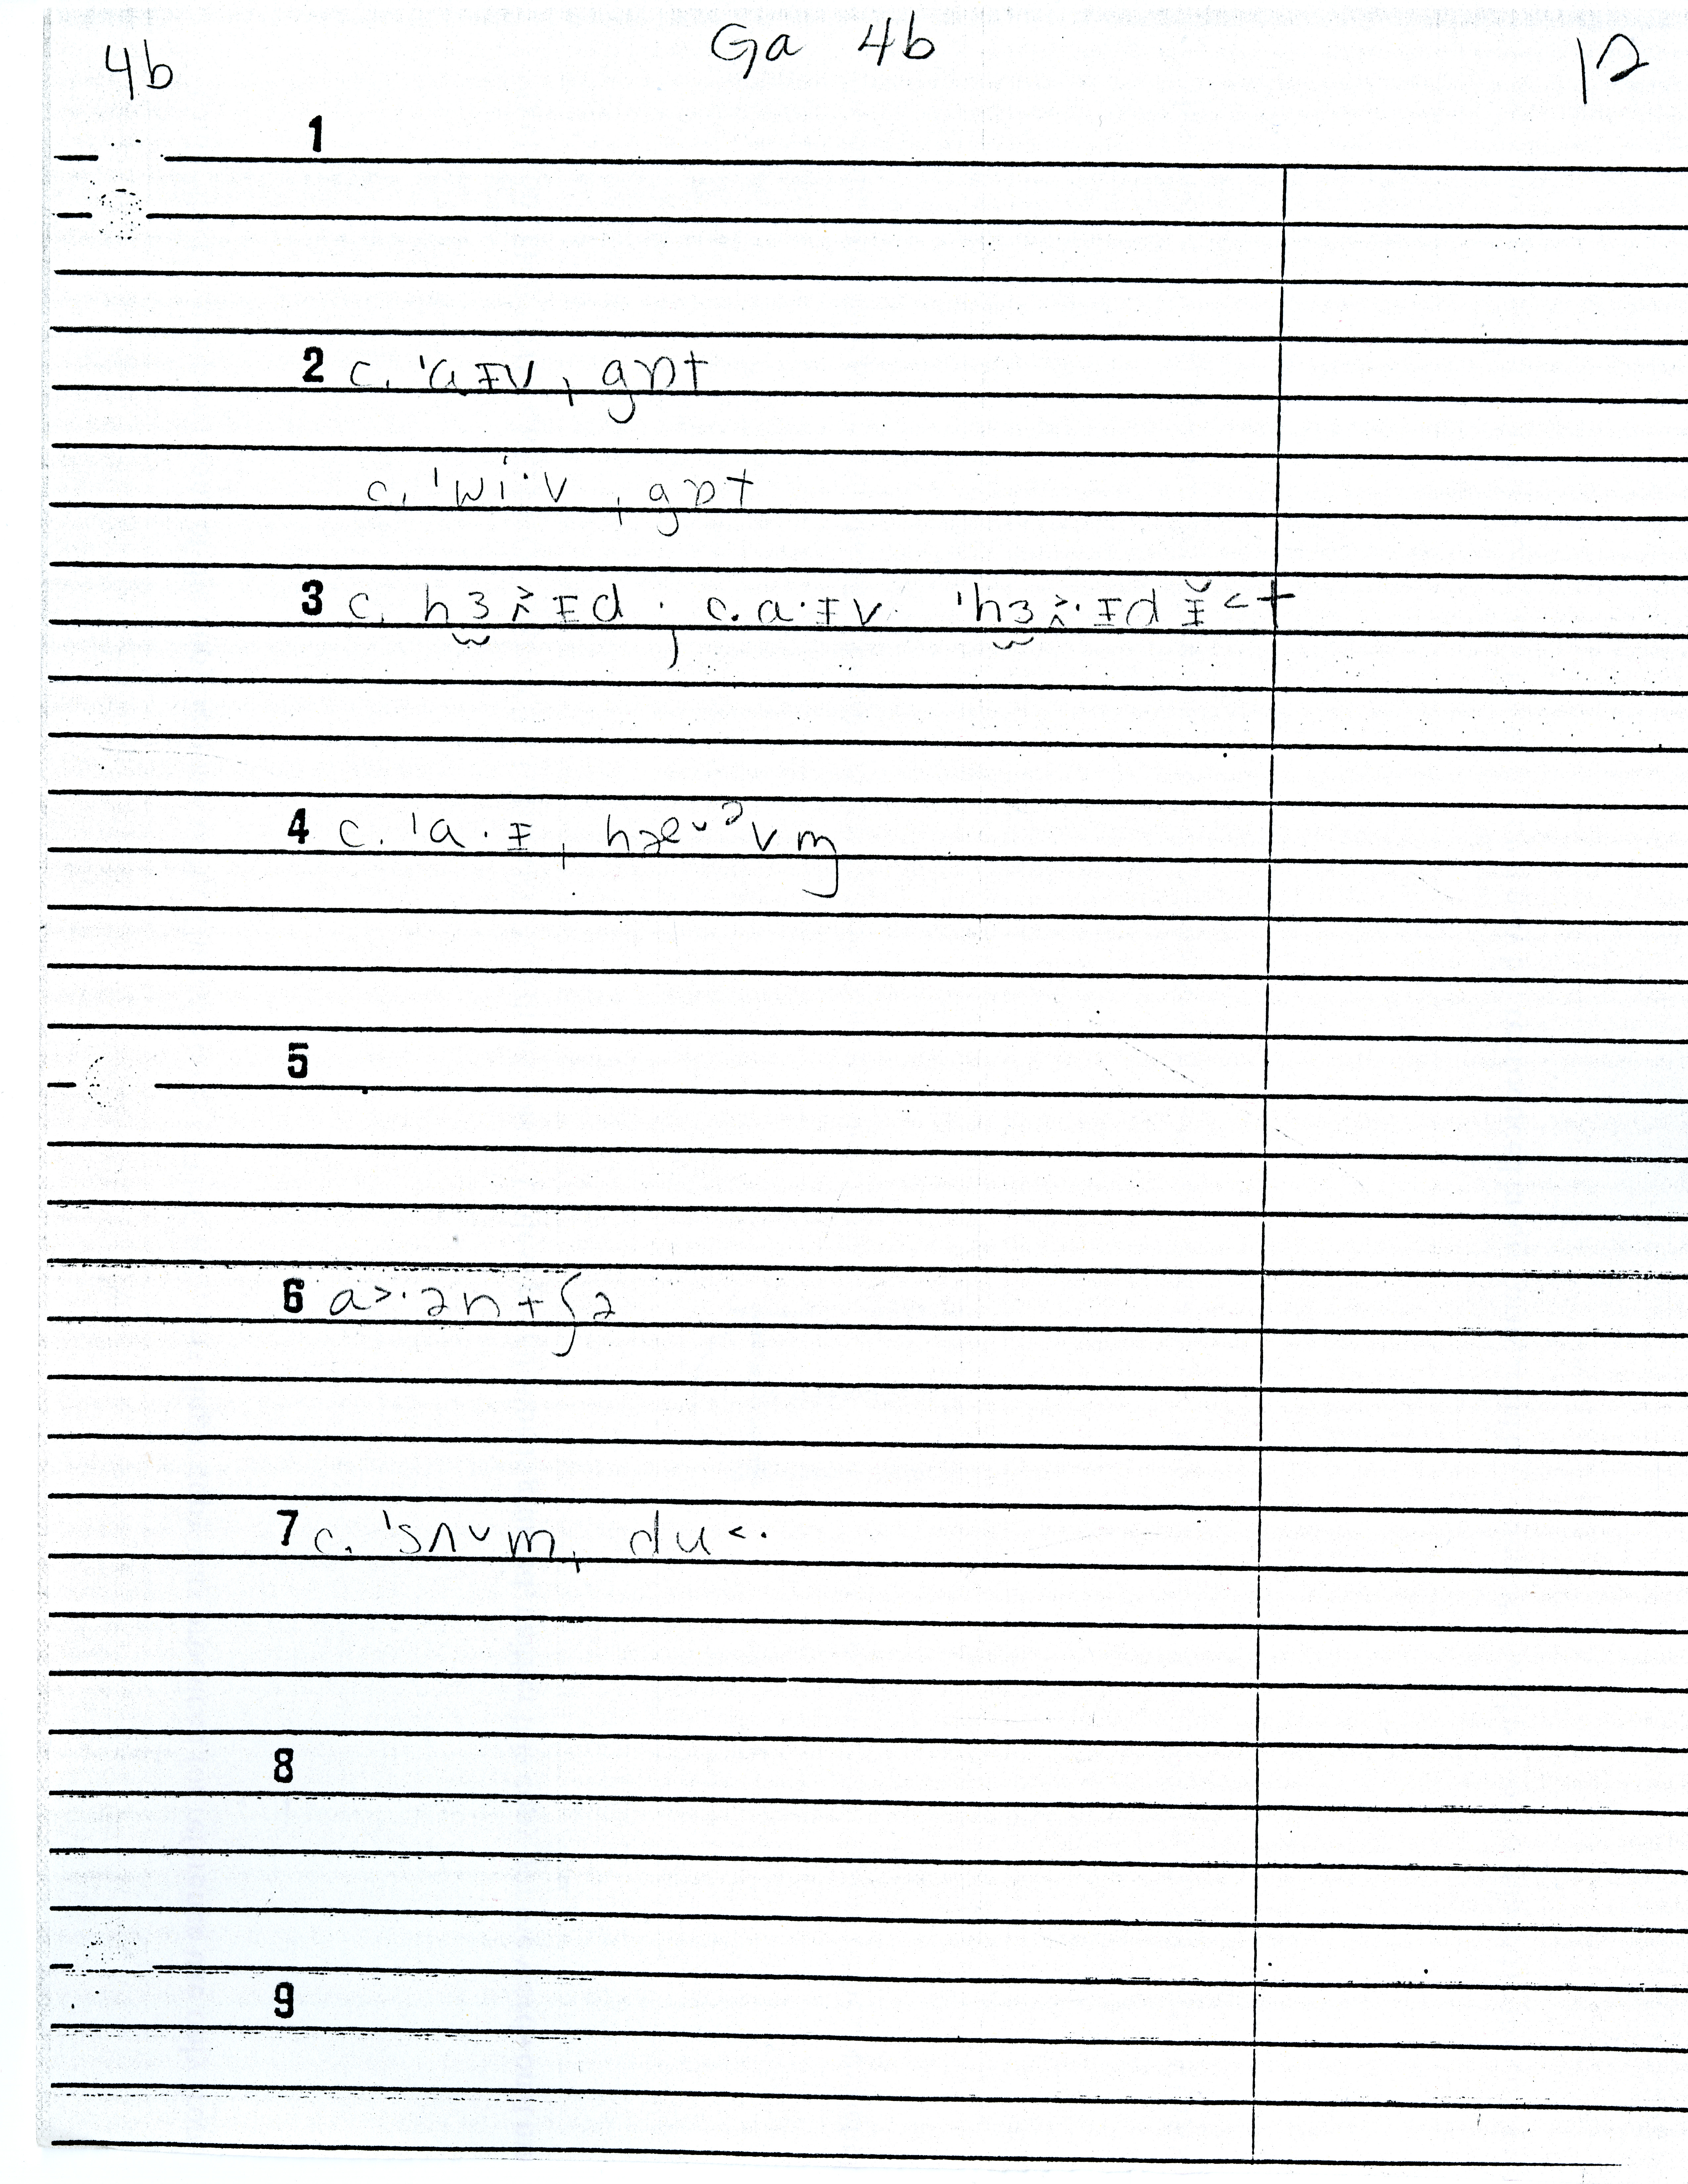 4b Ga 4b 12
1
2 c. ˈɑɪv, gɒt
c. ˈwi·v, gɒt
3 c. hɜ˞ɪd, c. a·ɪv ˈhɜ˞·ɪd ɪ̆˂t
4 c. ˈa·ɪ, hæᵛᵊvm̩
5
6 a˃·ən+ʃə
7 c. ˈsʌ˅m, du˂·
8
9